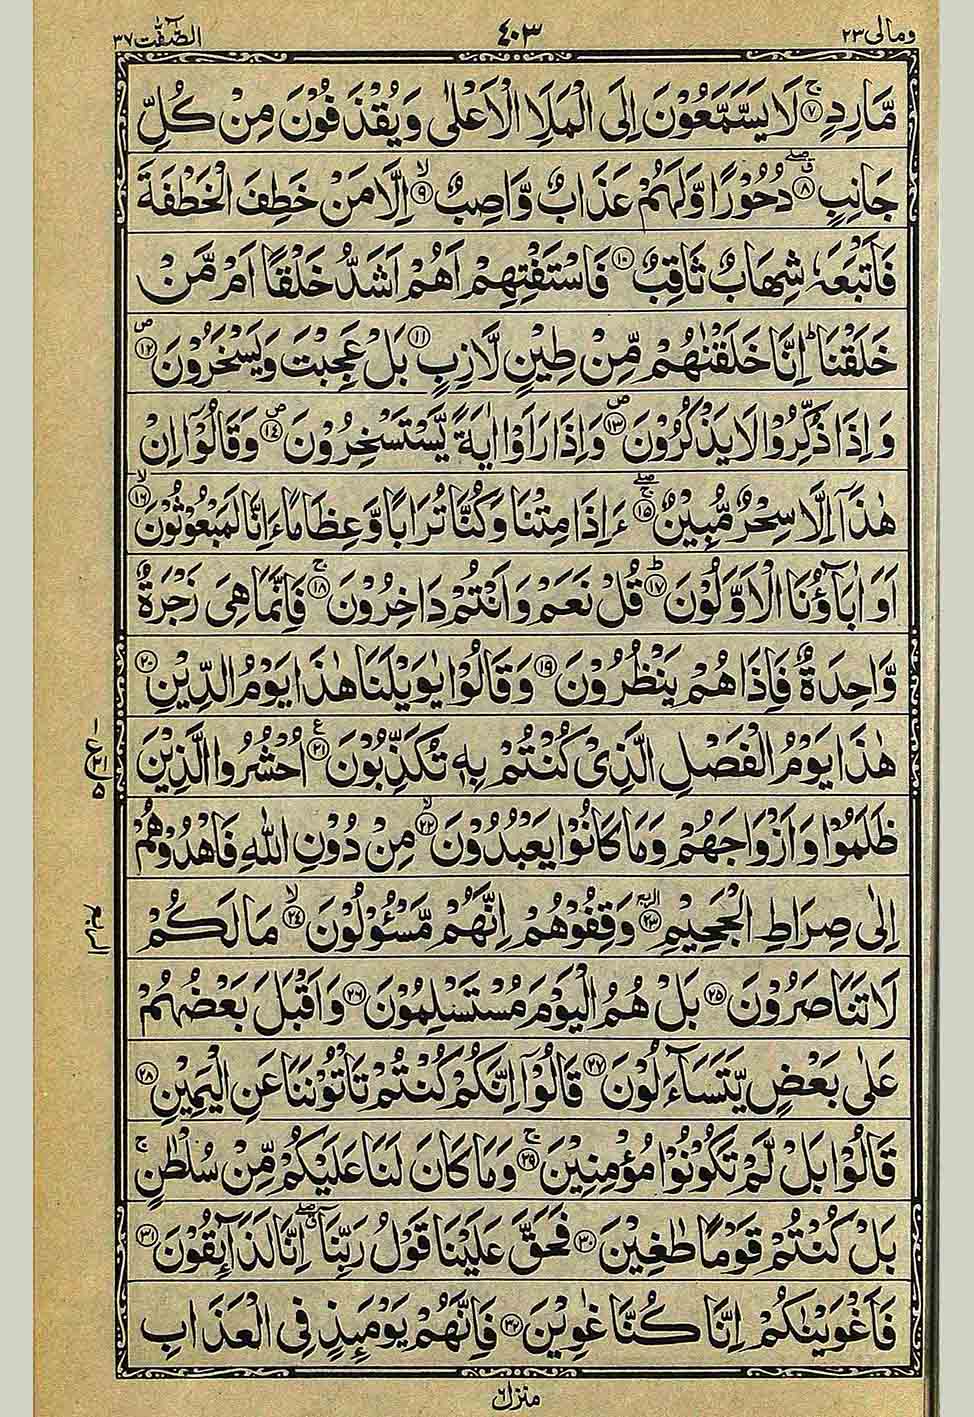 ومالی ٢٣
٤٠٣
الصّٰٓفّٰت ٣٧
مَّارِدٍ ۚ‏﴿٧﴾ لَا يَسَّمَّعُوْنَ اِلَى الْمَلَاِ الْاَعْلٰى وَيُقْذَفُوْنَ مِنْ كُلِّ
جَانِبٍ ۖ‏﴿٨﴾ دُحُوْرًا وَّلَهُمْ عَذَابٌ وَّاصِبٌ ۙ‏﴿٩﴾ اِلَّا مَنْ خَطِفَ الْخَطْفَةَ
فَاَتْبَعَهٗ شِهَابٌ ثَاقِبٌ ﴿١٠﴾ فَاسْتَفْتِهِمْ اَهُمْ اَشَدُّ خَلْقًا اَمْ مَّنْ
خَلَقْنَا ؕ اِنَّا خَلَقْنٰهُمْ مِّنْ طِيْنٍ لَّازِبٍ ﴿١١﴾ بَلْ عَجِبْتَ وَيَسْخَرُوْنَ ﴿١٢﴾
وَاِذَا ذُكِّرُوْا لَا يَذْكُرُوْنَ ﴿١٣﴾ وَاِذَا رَاَوْا اٰيَةً يَّسْتَسْخِرُوْنَ ﴿١٤﴾ وَقَالُوْۤا اِنْ
هٰذَاۤ اِلَّا سِحْرٌ مُّبِيْنٌ ﴿١٥﴾ ءَاِذَا مِتْنَا وَكُنَّا تُرَابًا وَّعِظَامًا ءَاِنَّا لَمَبْعُوْثُوْنَ ۙ‏﴿١٦﴾
اَوَاٰبَآؤُنَا الْاَوَّلُوْنَ ؕ‏﴿١٧﴾ قُلْ نَعَمْ وَاَنْتُمْ دَاخِرُوْنَ ۚ‏﴿١٨﴾ فَاِنَّمَا هِىَ زَجْرَةٌ
وَّاحِدَةٌ فَاِذَا هُمْ يَنْظُرُوْنَ ﴿١٩﴾ وَقَالُوْا يٰوَيْلَنَا هٰذَا يَوْمُ الدِّيْنِ ﴿٢٠﴾
هٰذَا يَوْمُ الْفَصْلِ الَّذِىْ كُنْتُمْ بِهٖ تُكَذِّبُوْنَ ﴿٢١﴾ اُحْشُرُوا الَّذِيْنَ
ظَلَمُوْا وَاَزْوَاجَهُمْ وَمَا كَانُوْا يَعْبُدُوْنَ ۙ‏﴿٢٢﴾ مِنْ دُوْنِ اللّٰهِ فَاهْدُوْهُمْ
اِلٰى صِرَاطِ الْجَحِيْمِ ﴿٢٣﴾ وَقِفُوْهُمْ اِنَّهُمْ مَّسْـُٔوْلُوْنَ ۙ‏﴿٢٤﴾ مَا لَكُمْ
لَا تَنَاصَرُوْنَ ﴿٢٥﴾ بَلْ هُمُ الْيَوْمَ مُسْتَسْلِمُوْنَ ﴿٢٦﴾ وَاَقْبَلَ بَعْضُهُمْ
عَلٰى بَعْضٍ يَّتَسَآءَلُوْنَ ﴿٢٧﴾ قَالُوْۤا اِنَّكُمْ كُنْتُمْ تَاْتُوْنَنَا عَنِ الْيَمِيْنِ ﴿٢٨﴾
قَالُوْا بَلْ لَّمْ تَكُوْنُوْا مُؤْمِنِيْنَ ۚ‏﴿٢٩﴾ وَمَا كَانَ لَنَا عَلَيْكُمْ مِّنْ سُلْطٰنٍ ۚ
بَلْ كُنْتُمْ قَوْمًا طٰغِيْنَ ﴿٣٠﴾ فَحَقَّ عَلَيْنَا قَوْلُ رَبِّنَاۤ ۖ اِنَّا لَذَآئِقُوْنَ ﴿٣١﴾
فَاَغْوَيْنٰكُمْ اِنَّا كُنَّا غٰوِيْنَ ﴿٣٢﴾ فَاِنَّهُمْ يَوْمَئِذٍ فِى الْعَذَابِ
منزل ٦